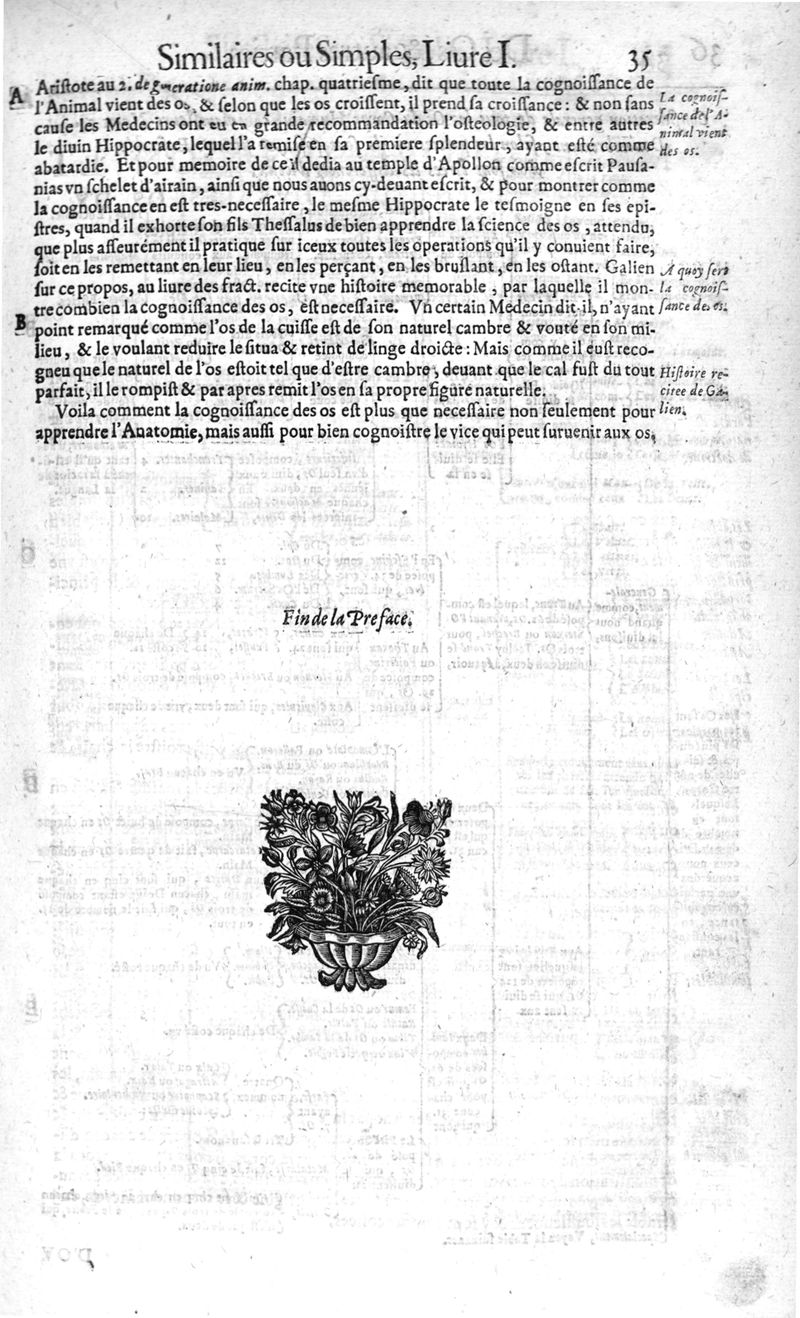 Similaires ou Simples, Liure I. 35
A
Aristote au 2. de generatione anim. chap. quatriesme, dit que toute la cognoissance de
l'Animal vient des os, & selon que les os croissent, il prend sa croissance : & non sans
cause les Medecins ont eu en grande recommandation l'osteologie, & entre autres
le diuin Hippocrate, lequel l'a remise en sa premiere splendeur, ayant esté comme
abatardie. Et pour memoire de ce il dedia au temple d'Apollon comme escrit Pausa-
nias vn schelet d'airain, ainsi que nous auons cy-deuant escrit, & pour montrer comme
la cognoissance en est tres-necessaire, le mesme Hippocrate le tesmoigne en ses epi-
stres, quand il exhorte son fils Thessalus de bien apprendre la science des os, attendu,
que plus asseurément il pratique sur iceux toutes les operations qu'il y conuient faire,
soit en les remettant en leur lieu, en les perçant, en les bruslant, en les ostant. Galien
sur ce propos, au liure des fract. recite vne histoire memorable, par laquelle il mon-
tre combien la cognoissance des os, est necessaire. Vn certain Medecin dit-il, n'ayant
B
point remarqué comme l'os de la cuisse est de son naturel cambre & vouté en son mi-
lieu, & le voulant reduire le situa & retint de linge droicte : Mais comme il eust reco-
gneu que le naturel de l'os estoit tel que d'estre cambre, deuant que le cal fust du tout
parfait, il le rompist & par apres remit l'os en sa propre figure naturelle.
Voila comment la cognoissance des os est plus que necessaire non seulement pour
apprendre l'Anatomie, mais aussi pour bien cognoistre le vice qui peut suruenir aux os,
La cognois-
sance de l'A-
nimal vient
des os.
A quoy sert
la cognois-
sance des os.
Histoire re-
citee de Ga-
lien.
Fin de la Preface.